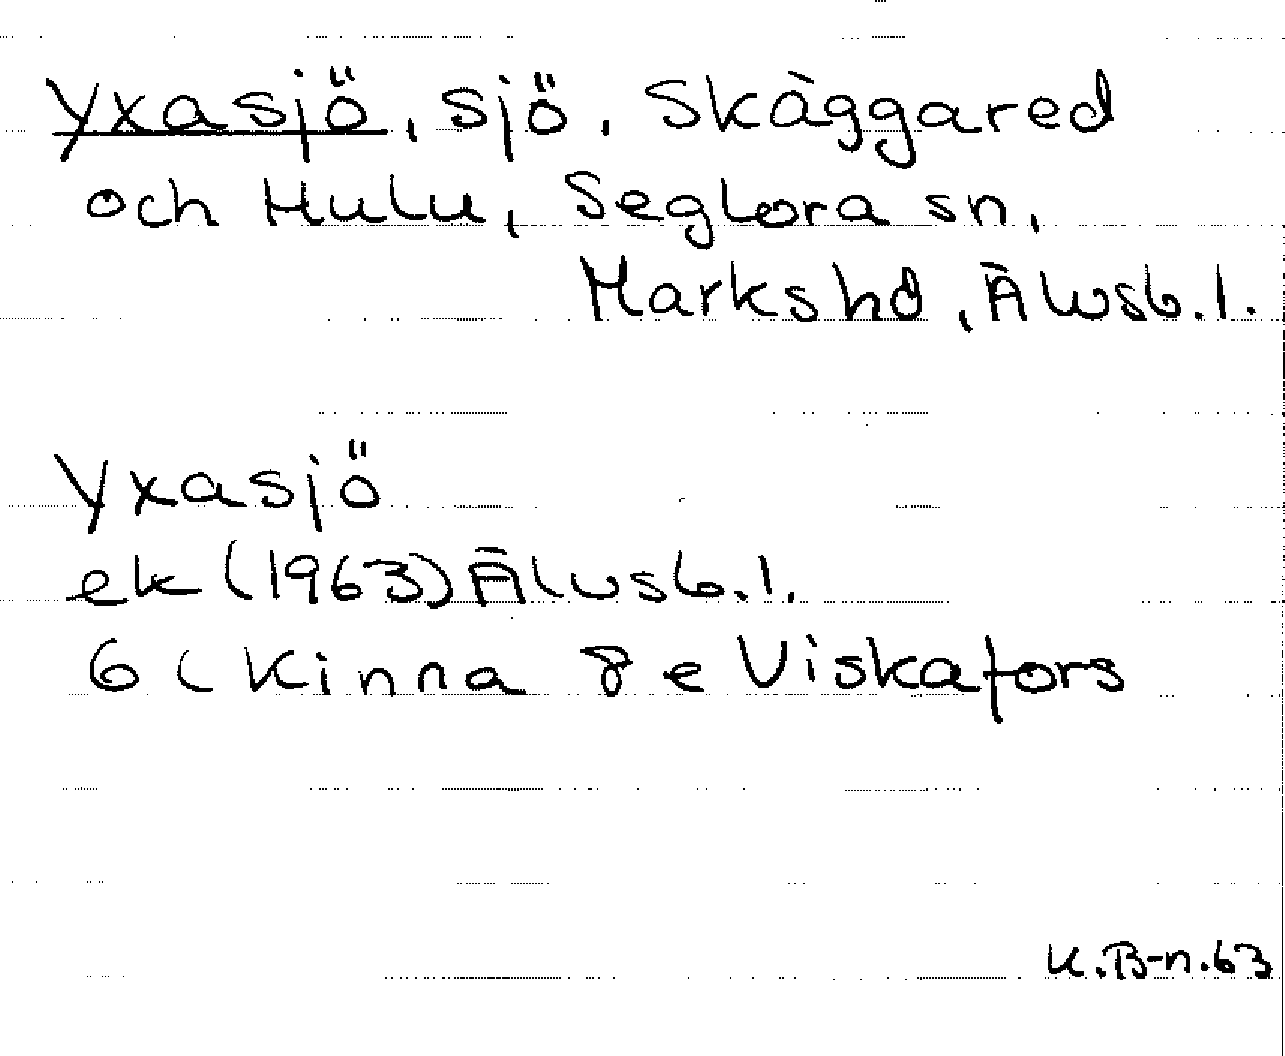 Yxasjö, sjö, Skäggared
och Hulu, Seglora sn,
Marks hd, Älvsb. l.
Yxasjö
ek (1963) Älvsb. l.
6 C Kinna 8 e Viskafors
K.B-n. 63